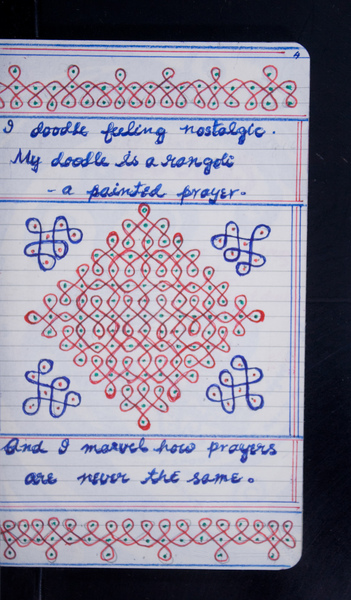 4
I doodle feeling nostalgic.
My doodle is a rangoli
- a painted prayer.
And I marvel how prayers
are never the same.